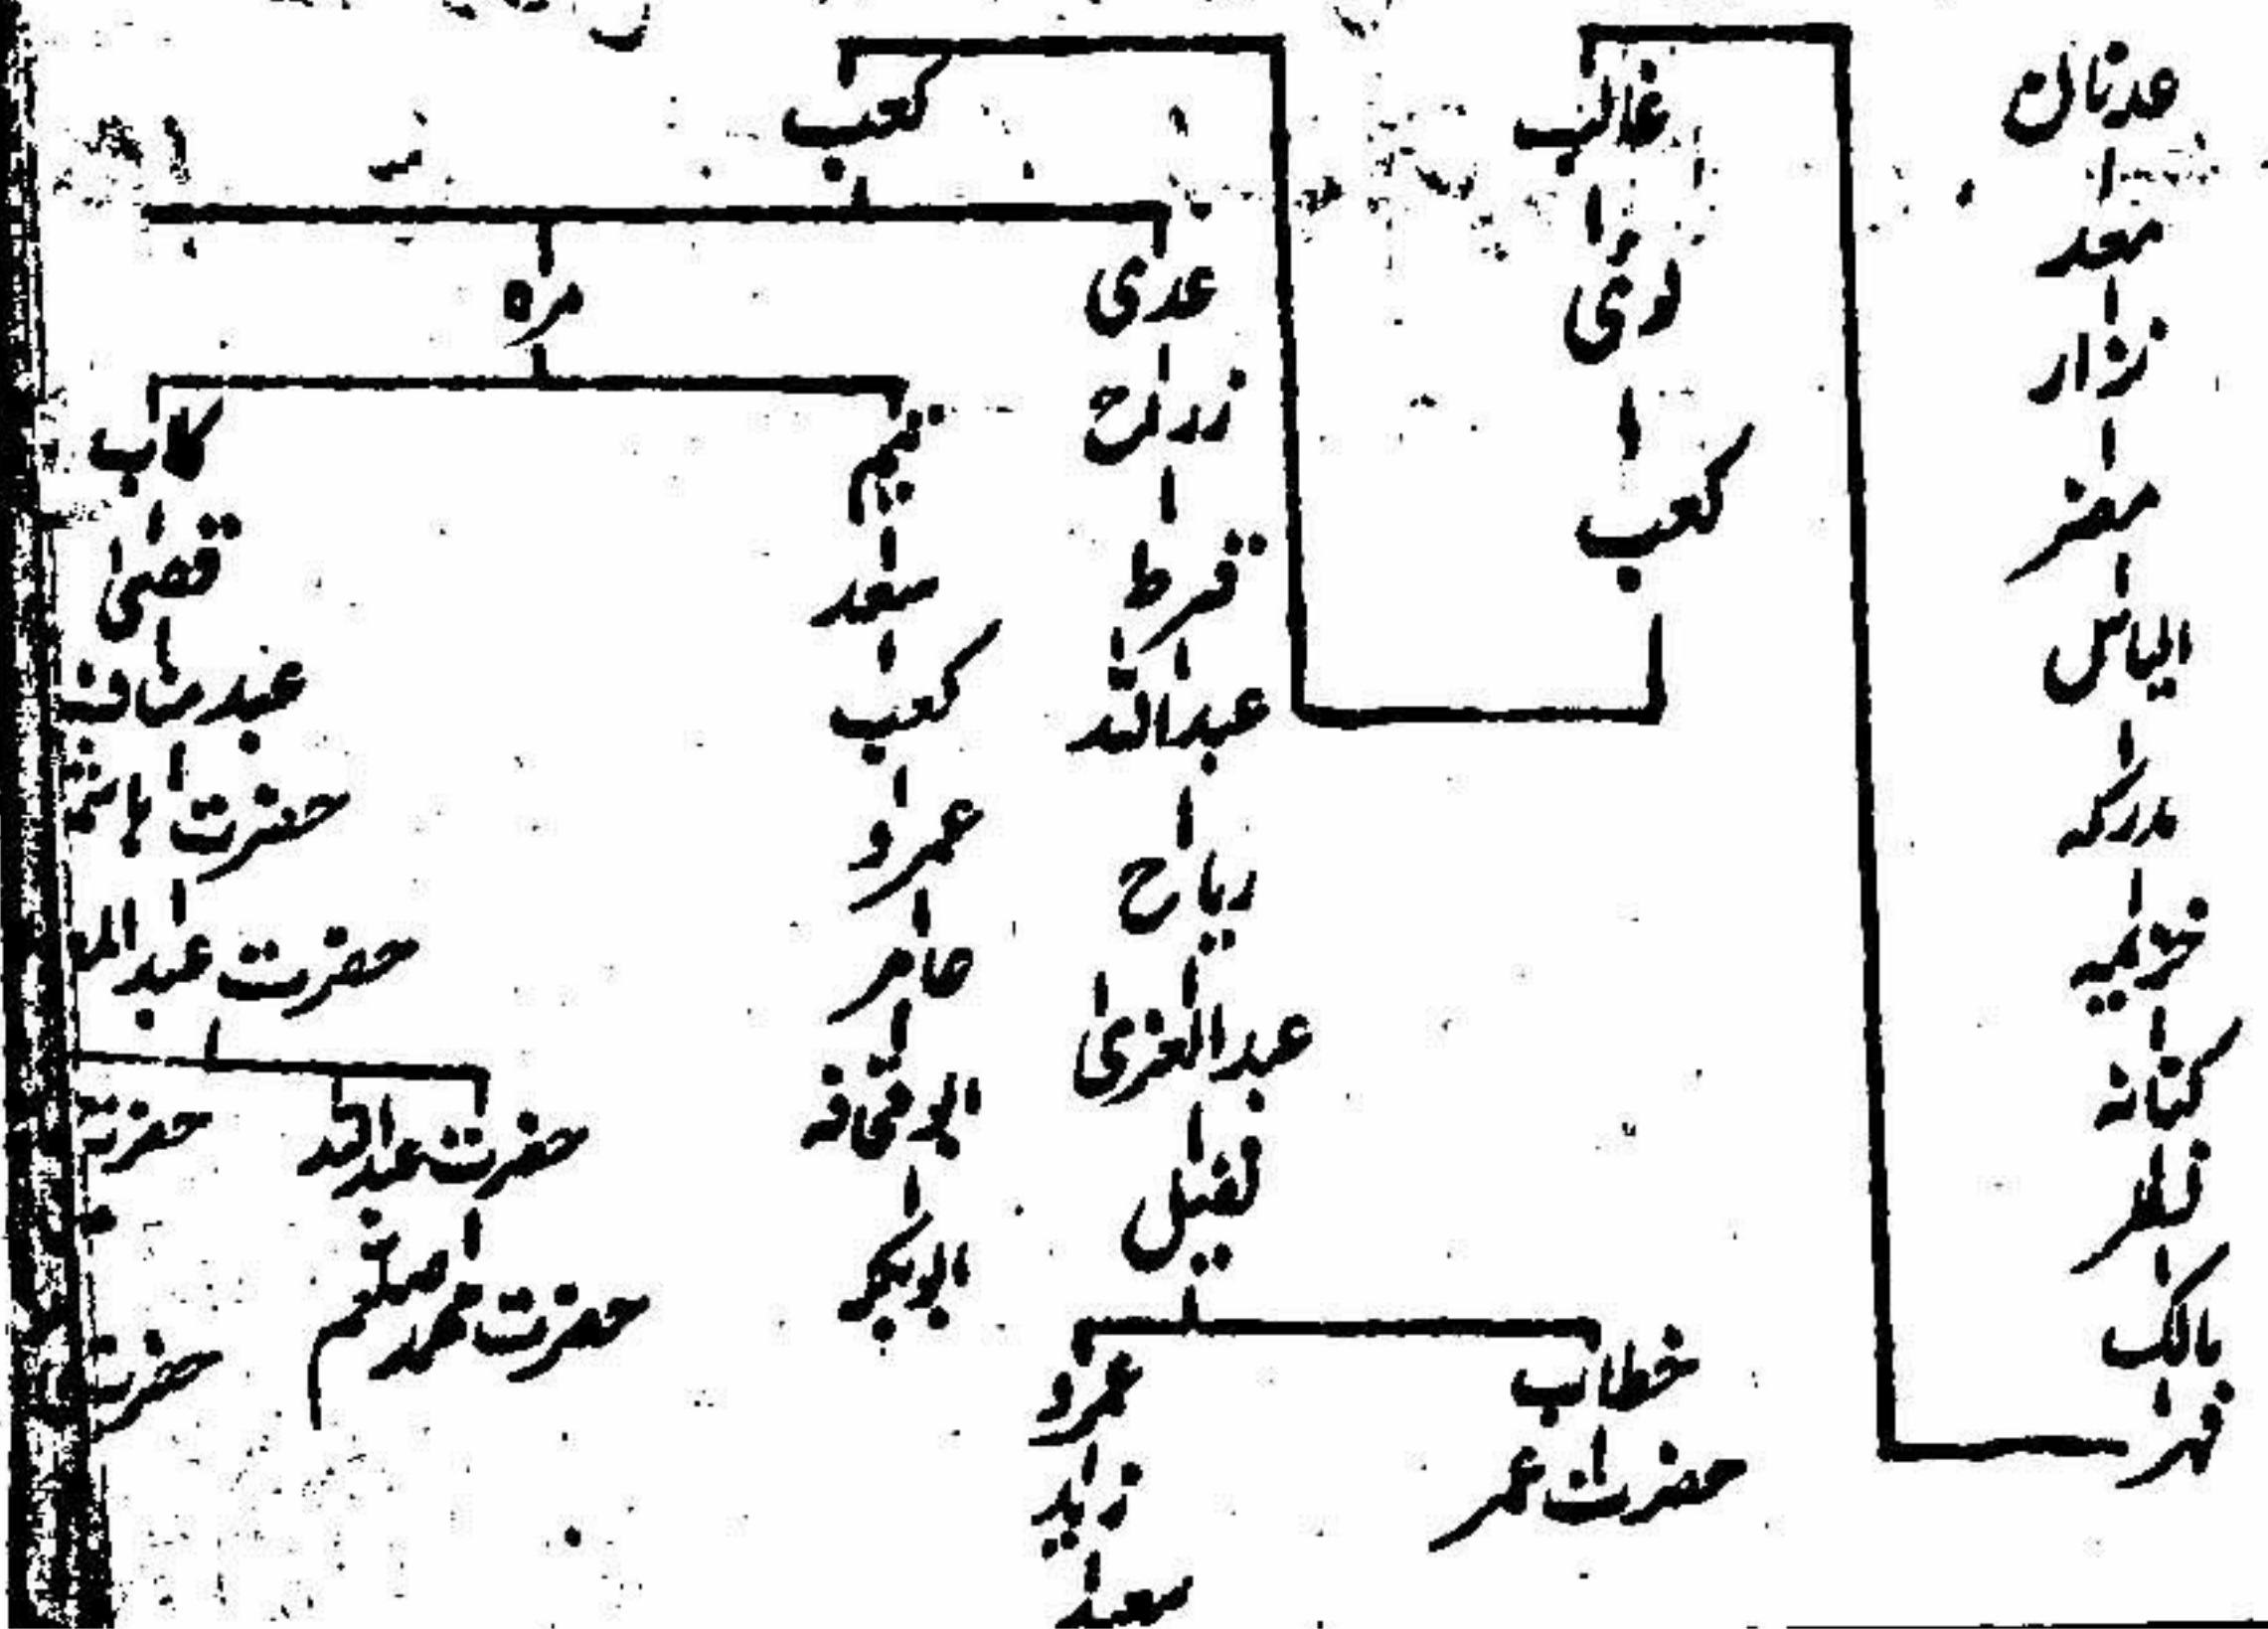 عدنان
معد
نزار
مضر
الیاس
مدرکہ
خزیمہ
کنانہ
نضر
مالک
فہر
غالب
لوئ
کعب
کعب
عدی
زراح
قرط
عبداللہ
ریاح
عبدالعزیٰ
نفیل
خطاب
حضرت عمر
عمرو
زید
سعد
مرہ
تیم
سعد
کعب
عمرو
عامر
ابوقحافہ
ابوبکر
کلاب
قصیٰ
عبدمناف
حضرت ہاشم
حضرت
حضرت عبداللہ
حضرت محمد صلعم
حضرت
حضرت